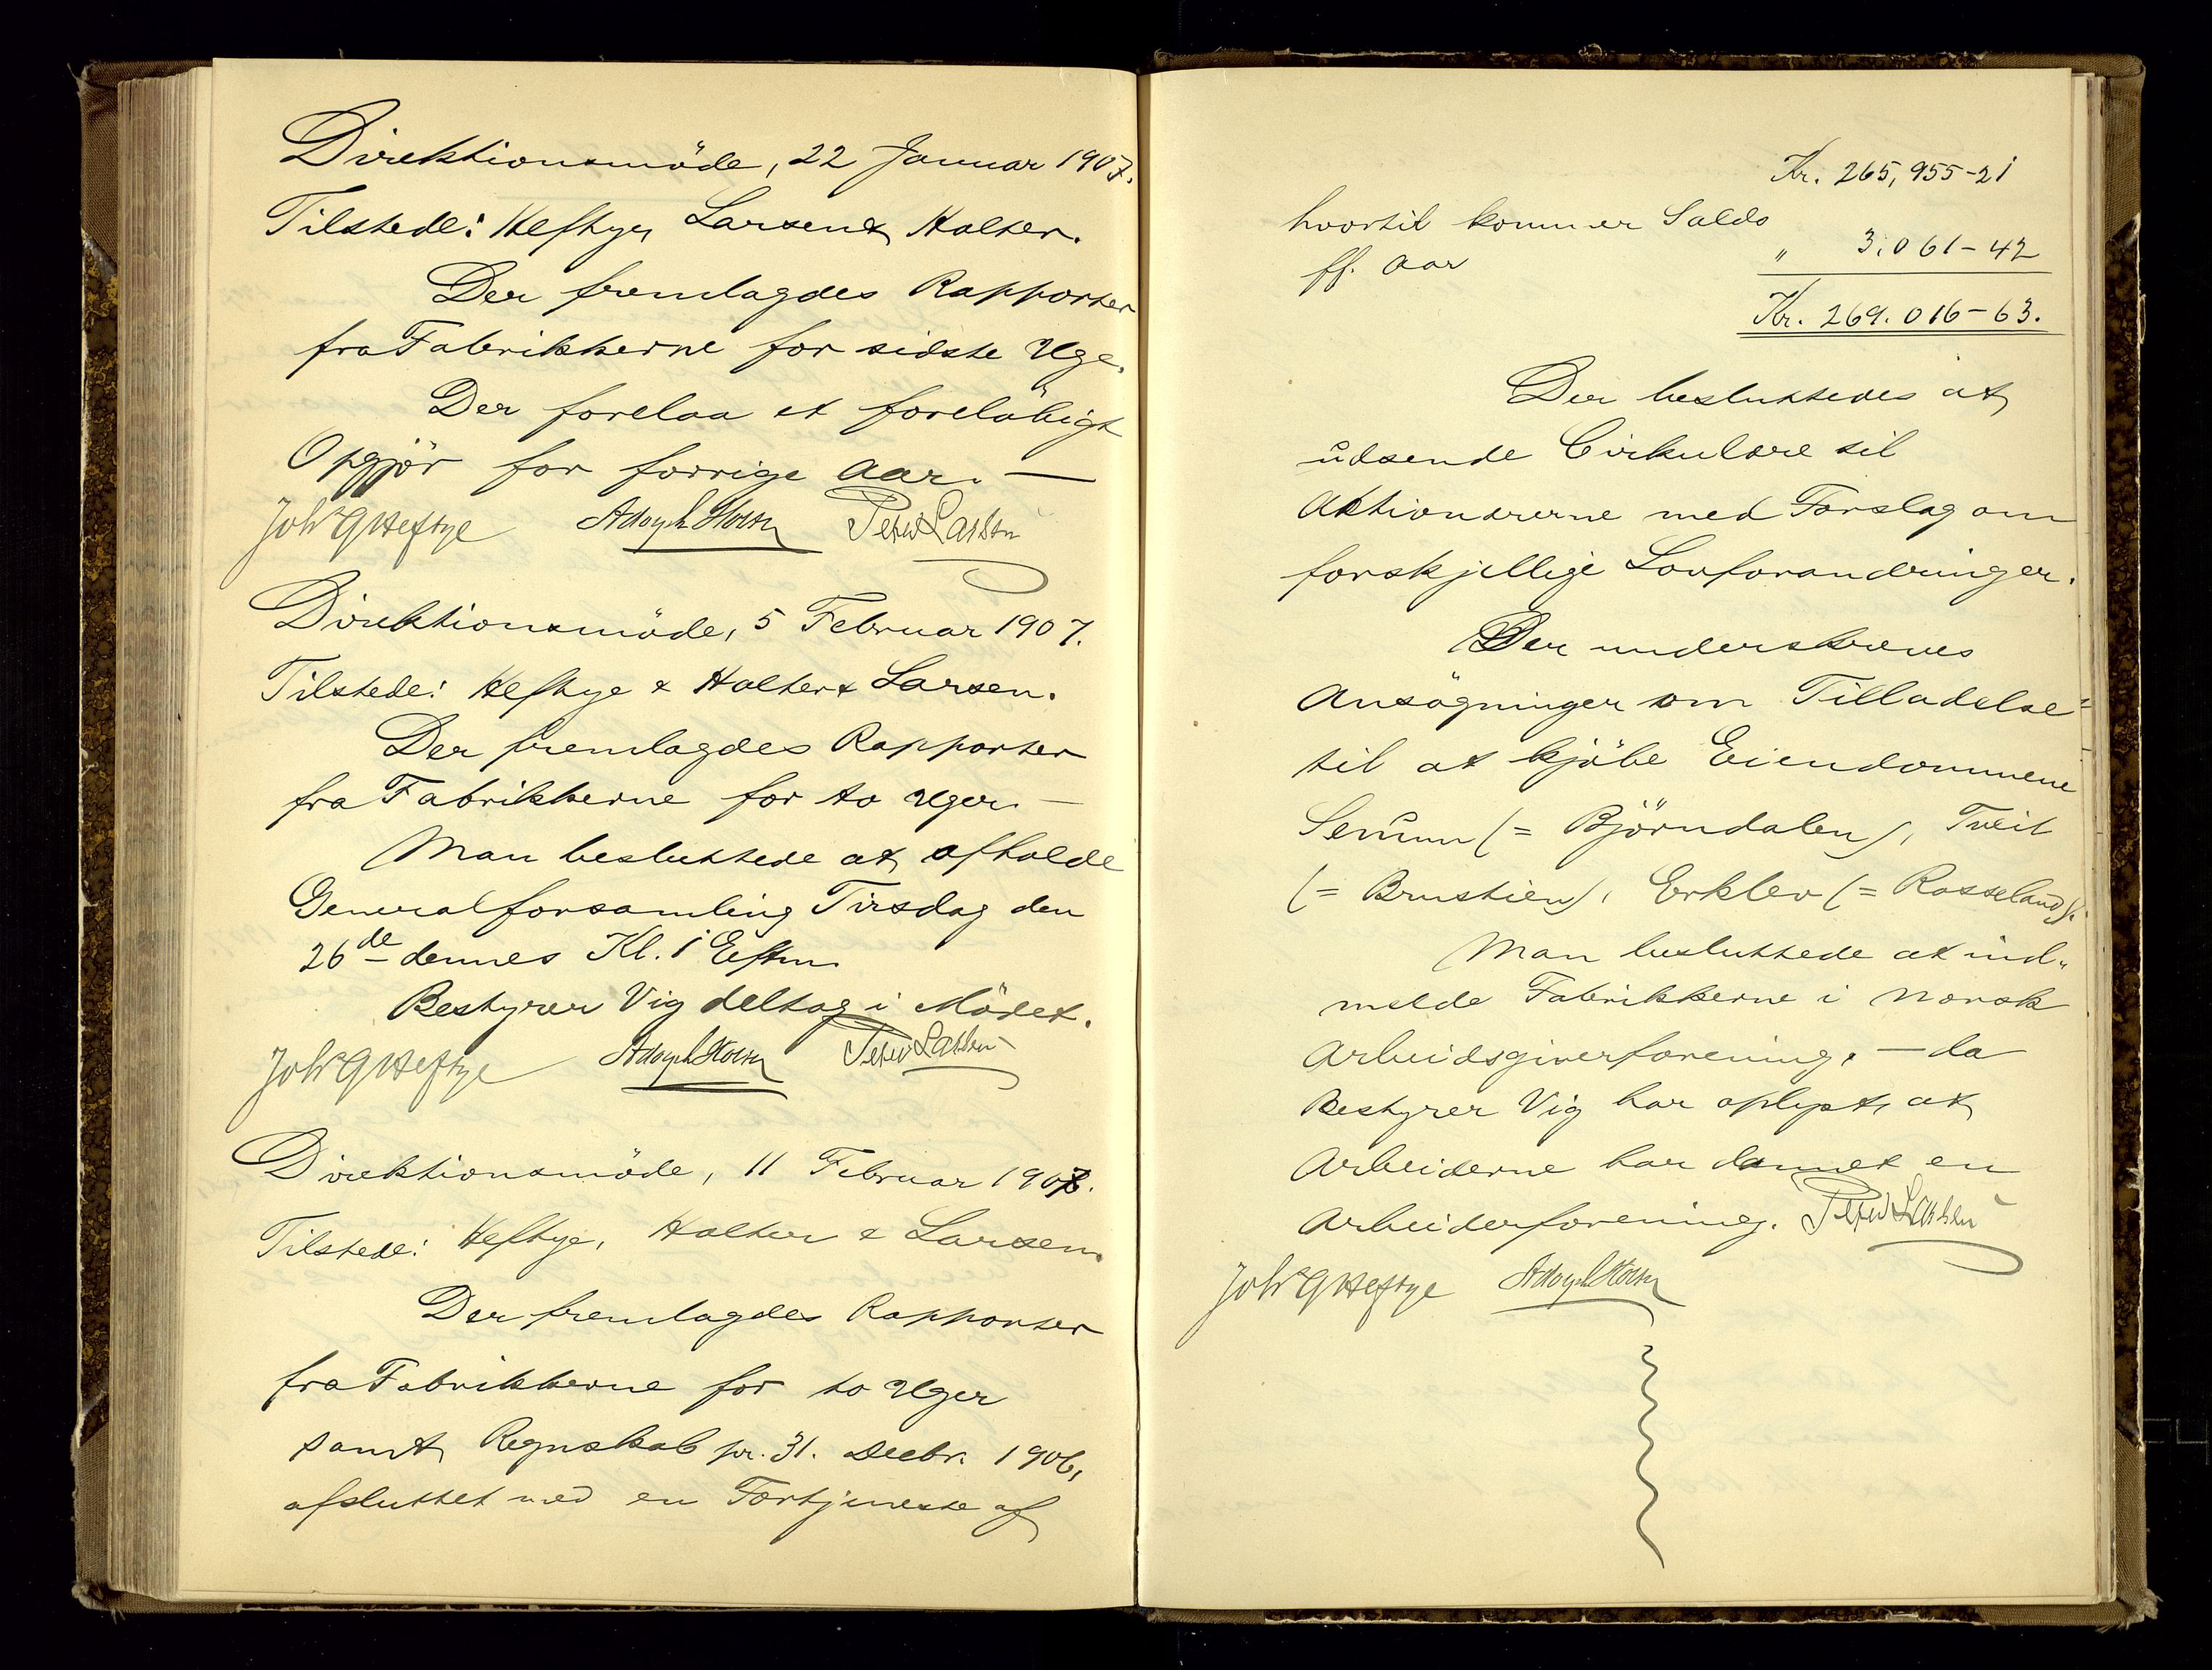 Direktionsmöde, 22 Januar 1907.
Tilstede: Heftye, Larsen & Holter.
Der fremlagdes Rapporter
fra Fabrikkerne for sidste Uge.
Der forelaa et foreløbigt
Opgjör for forrige Aar. —
Joh G Heftye Adolph Holter Peter Larsen
Direktionsmöde, 5 Februar 1907.
Tilstede: Heftye & Holter & Larsen.
Der fremlagdes Rapporter
fra Fabrikkerne for to Uger. —
Man besluttede at afholde
Generalforsamling Tirsdag den
26de dennes Kl. 1 Eftm.
Bestyrer Vig deltog i Mödet.
Joh G Heftye Adolph Holter Peter Larsen
Direktionsmöde, 11 Februar 1907.
Tilstede: Heftye, Holter & Larsen.
Der fremlagdes Rapporter
fra Fabrikkerne for to Uger
samt Regnskab pr. 31. Decbr. 1906,
afsluttet med en Fortjeneste af
Kr. 265,955-21
hvortil kommer Saldo
ff. Aar " 3.061-42
Kr. 269.016-63.
Der besluttedes at
udsende Cirkulære til
Aktionærerne med Forslag om
forskjellige Lovforandringer.
Der underskreves
Ansögninger om Tilladelse
til at kjöbe Eiendommene
(= Björndalen), Tveit
(= Brustien), Erklev (= Rosseland).
Man besluttede at ind-
melde Fabrikkerne i Norsk
Arbeidsgiverforening, — da
Bestyrer Vig har oplyst, at
Arbeiderne har dannet en
Arbeiderforening. Peter Larsen
Joh G Heftye Adolph Holter